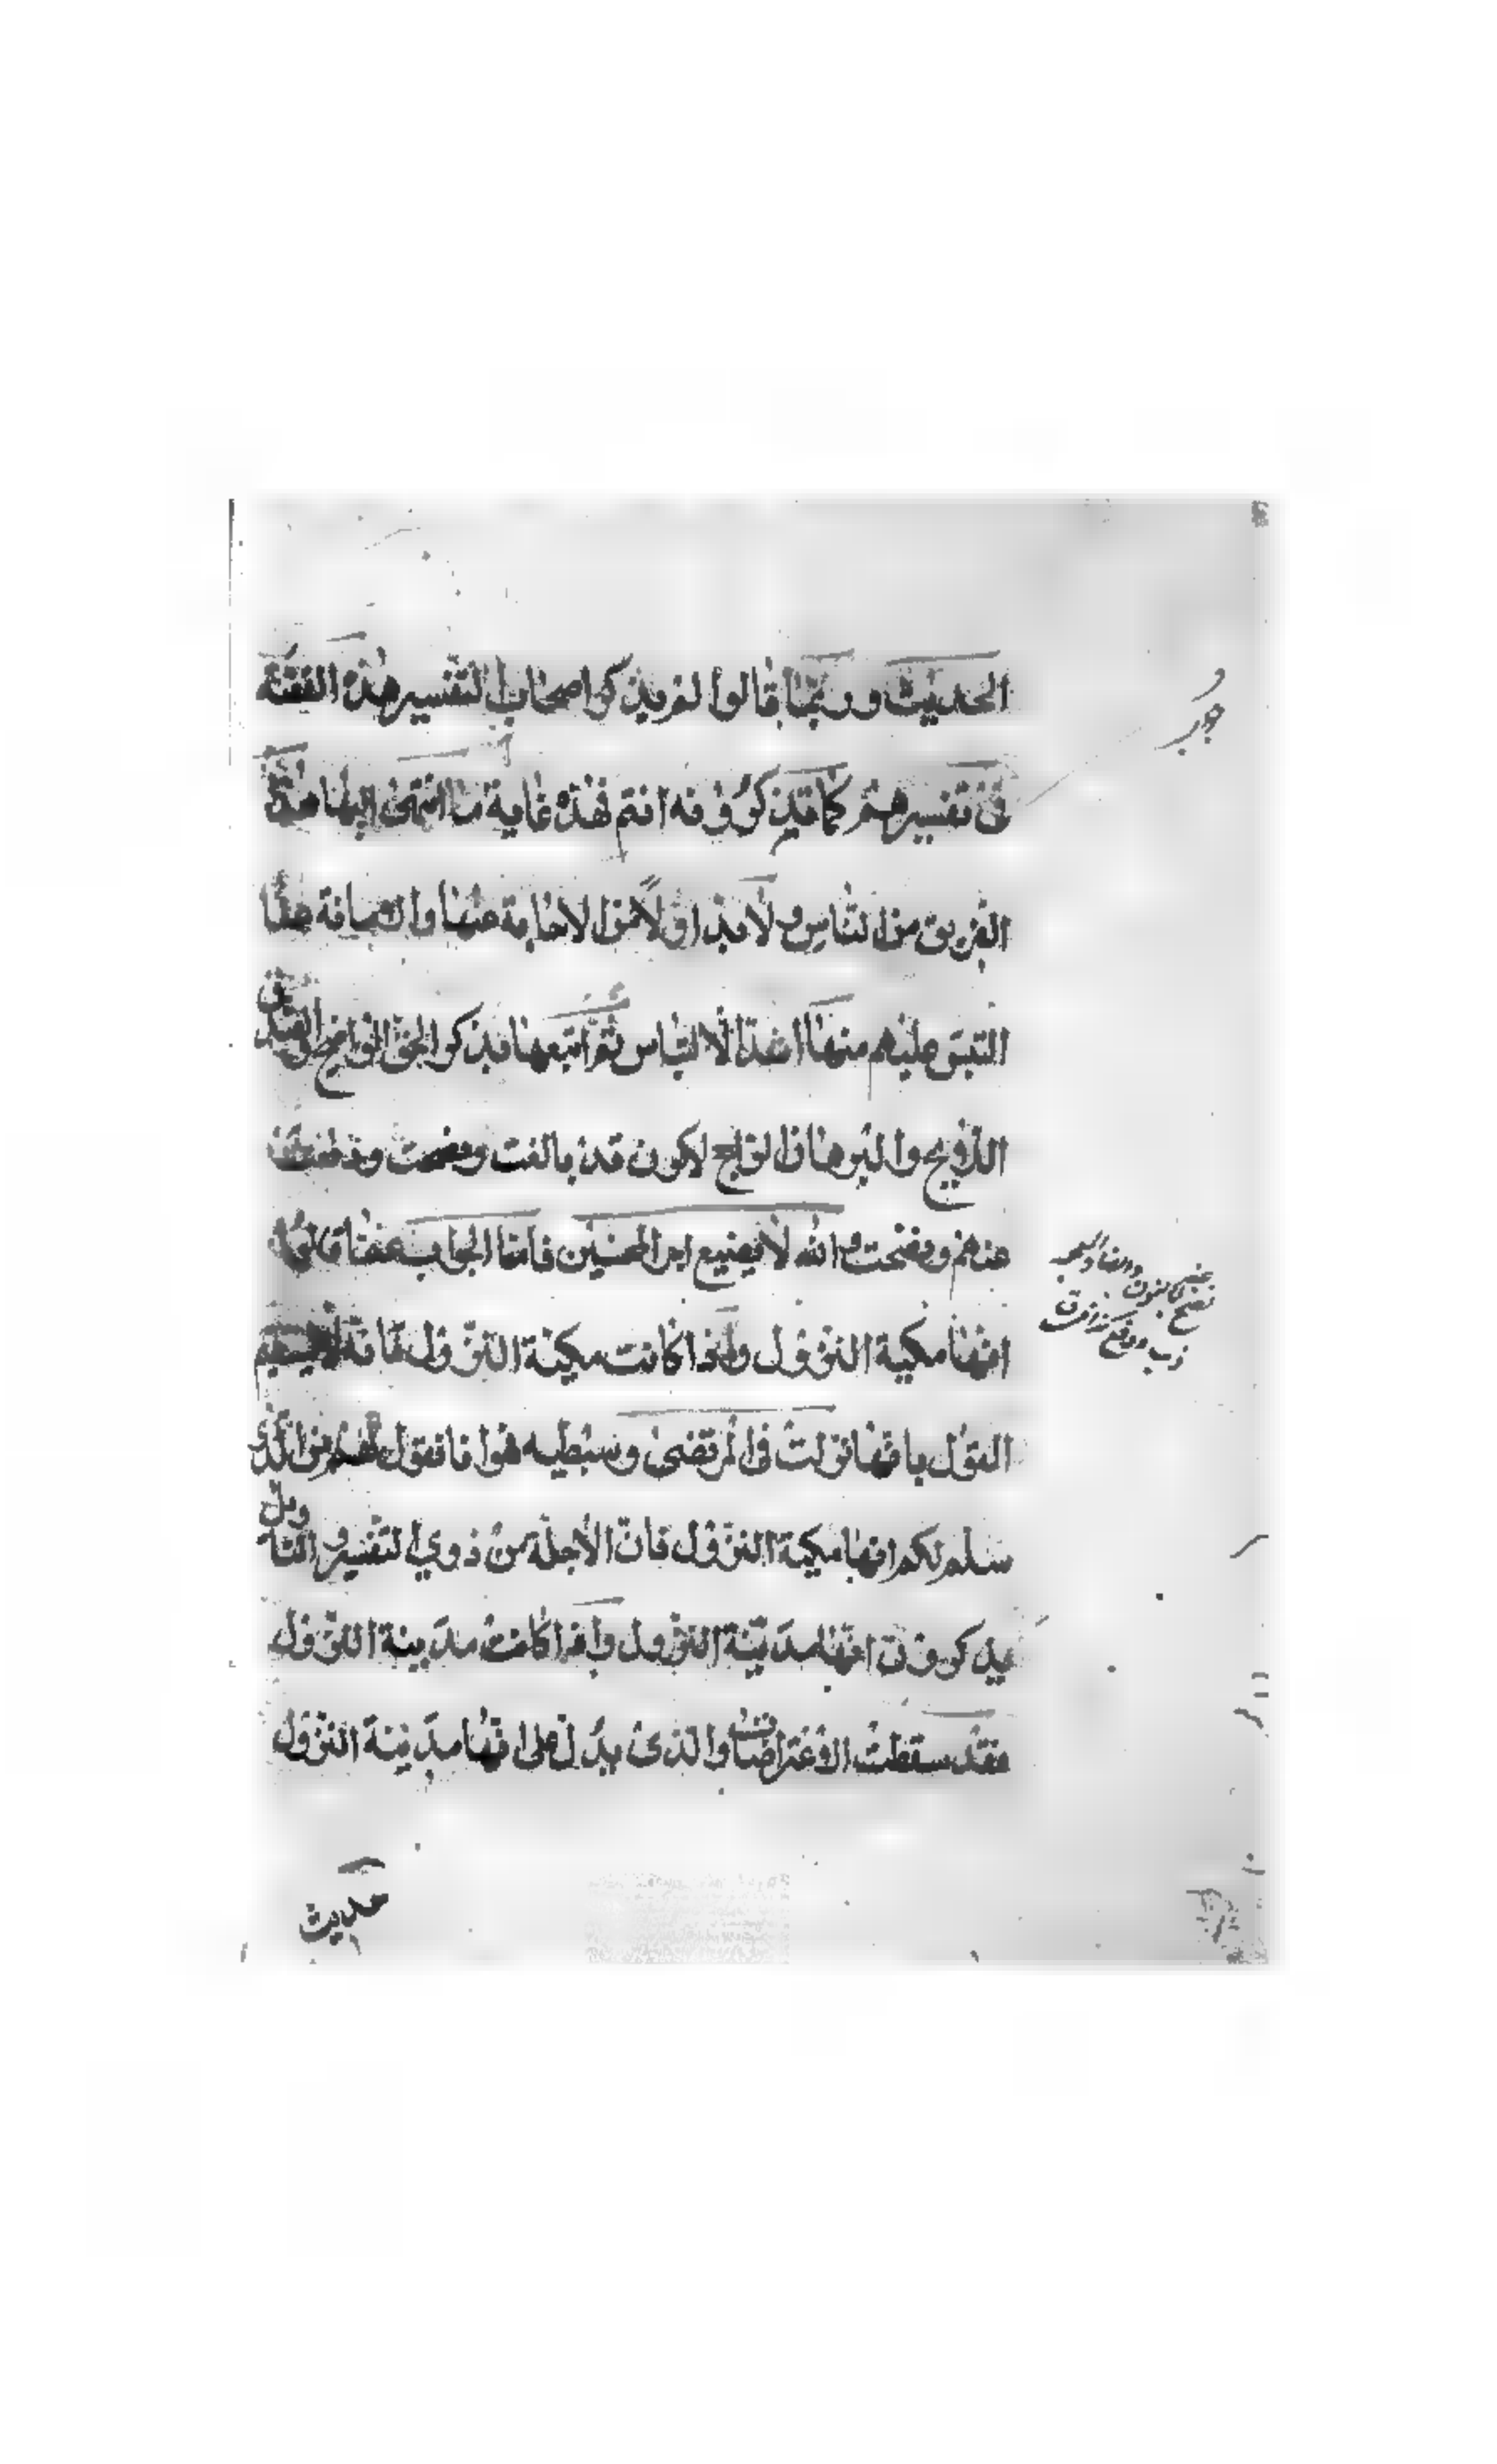 الحديث وربما قالوا لم يذكر اصحاب التفسير هذه القصّة
في تفسيرهم كما تذكرونه انتم فهذه غاية ما انتهى اليها هذا
الفريق من الناس ولابد اولا من الاجابة عنها والابانة عمّا
التبس عليهم منها اشدّ الالتباس ثمّ اتبعها بذكر الحق الواضح
والبرهان اللائح ليكون قد بالغت ونصحت
عنهم ونضحت والله لا يضيع اجر المحسنين فامّا الجواب عمّا قالوا
انها مكية النزول واذا كانت مكية النزول فانه لا يستقيم
القول بانها نزلت في المرتضى وسبطيه هو انا نقول لهم من الذي
سلم لكم انها مكية النزول فانّ الاجلّة من ذوي التفسير والتاويل
يذكرون انها مدنيّة النزول واذا كانت مدينية النزول
فقد سقطت الاعتراضات والذى يدلّ على انها مدينية النزول
حديث